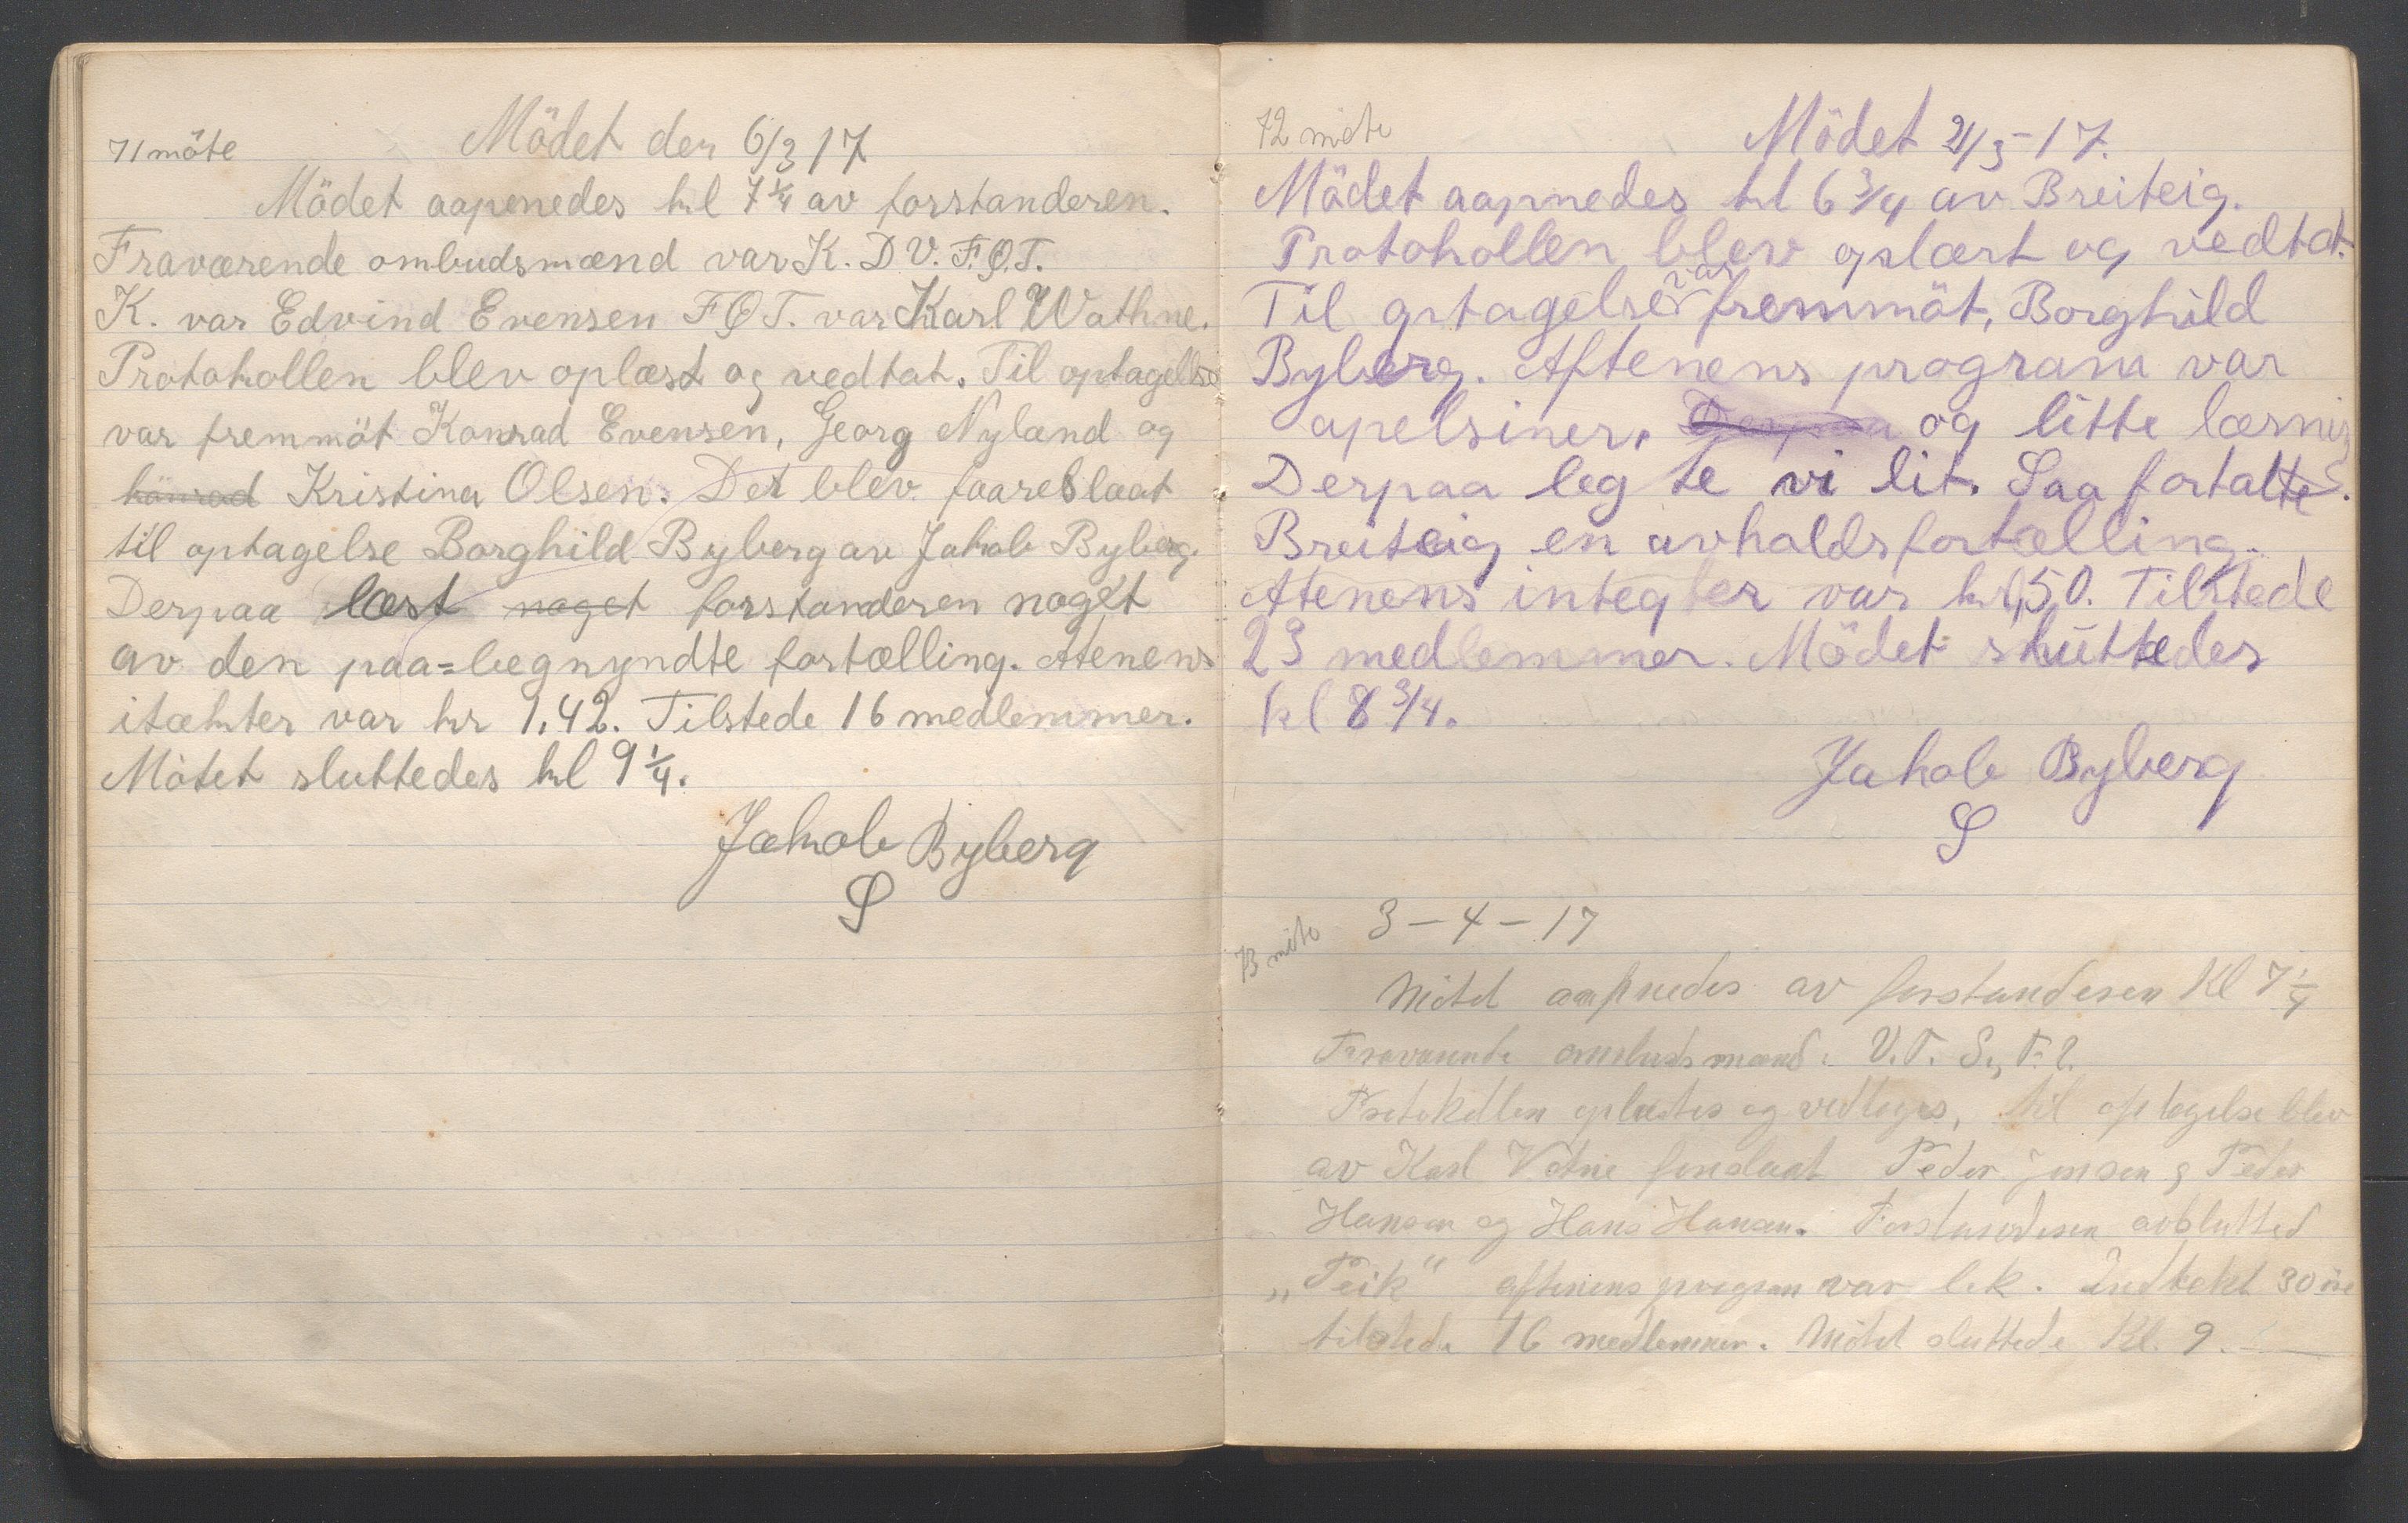 71 möte
Mödet den 6/3 17
Mödet aapenedes kl 7 1/4 av forstanderen.
Fraværende ombudsmænd var K. D V. F.Q.T.
K. var Edvind Evensen FQT. var Karl Wathne.
Protokollen blev oplæst og vedtat. Til optagellse
var fremmöt Konrad Evensen, Georg Nyland og
Kristina Olsen. Det blev foareslaat
til optagelse Borghild Byberg av Jakob Byberg.
Derpaa læst noget forstanderen noget
av den paa=begnyndte fortælling. Atenens
itækter var kr 1,42. Tilstede 16 medlemmer.
Mötet sluttedes kl 9 1/4.
Jakob Byberg
S
72 möte
Mödet 21/3-17.
Mödet aapnedes kl 6 3/4 av Breiteig.
Protokollen blev oplært og vedtat.
Til optagelse var fremmöt, Borghild
Byberg. Aftenens program var
apelsiner, og litte læsning
Derpaa leg te vi lit. Saa fortalte
Breiteig en avholdsfortælling.
Atenens integter var kr 1,50. Tilstede
23 medlemmer. Mödet sluttedes
kl 8 3/4.
Jakob Byberg
S
73 möte
3-4-17
Mötet aapnedes av forstanderen Kl 7 1/4
Fraværende ombudsmænd: V.T. S.,
Protokollen oplæstes og vedtoges, til optagelse blev
av Karl Votne foreslaat Peder Jensen, Peder
Hansen og Hans Hansen. Forstanderen avslutted
„Peik" aftenens program var lek. Indtekt 30 öre
tilstede 16 medlemmer. Mötet sluttede Kl. 9.